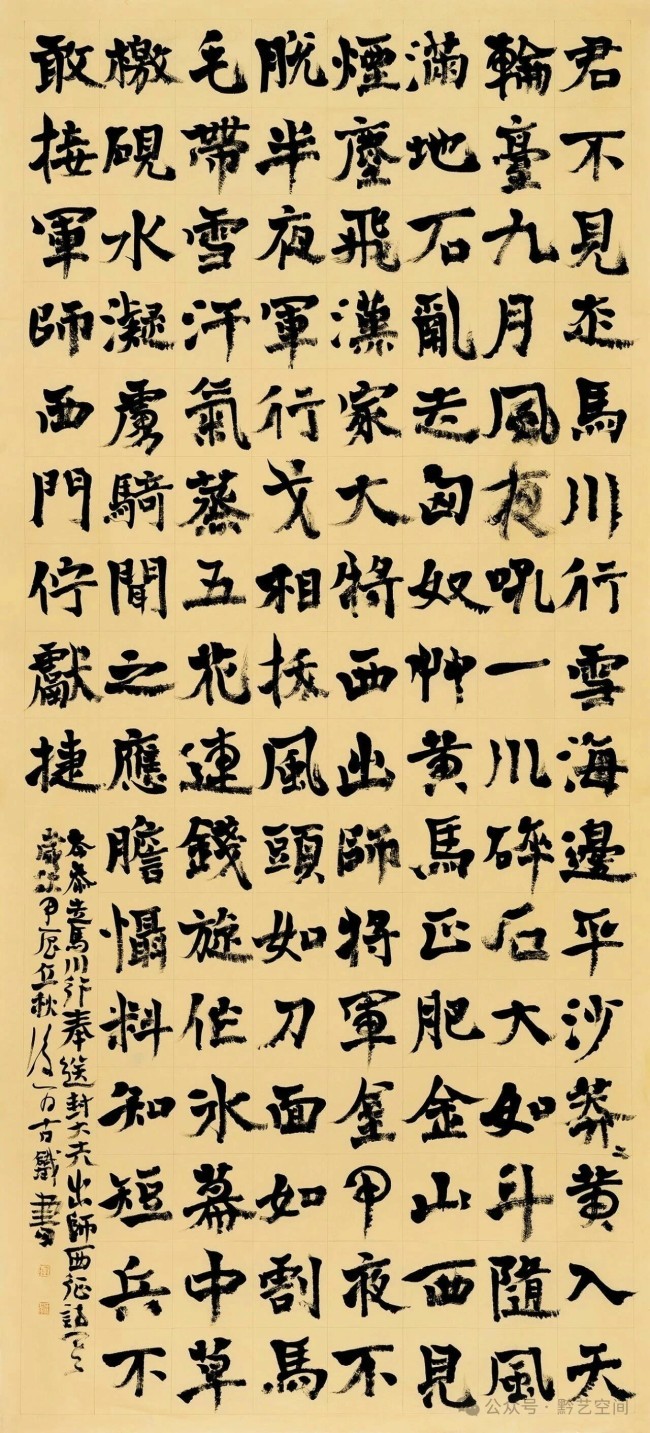 君不見走馬川行雪海邊平沙莽〻黄入天
輪臺九月風夜吼一川碎石大如斗隨風
滿地石亂走匈奴艸黄馬正肥金山西見
煙塵飛漢家大將西出師將軍金甲夜不
脱半夜軍行戈相撥風頭如刀面如割馬
毛帶雪汗氣蒸五花連錢旋作冰幕中草
檄硯水凝虜騎聞之應膽懾料知短兵不
敢接軍師西門佇獻捷
岑參走馬川行奉送封大夫出師西征詩
歲次甲辰立秋後一日古鐵書
公众号·黔艺空间